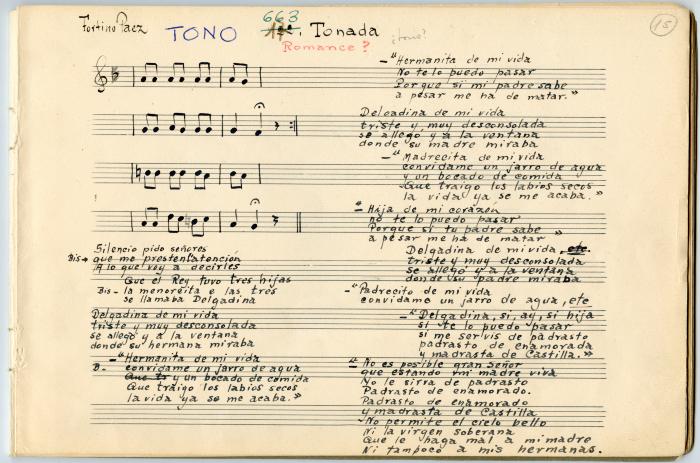 Fortino Paez
TONO
663
Tonada
¿tono?
Romance?
15
Silencio pido señores
Bis- que me prestentatención
A lo que voy a decirles
Que el Rey tuvo tres hijas
Bis- la menoreita e las tres
se llamaba Delgadina
Delgadina de mi vida
triste y muy desconsolada
se allegó y a la ventana
donde su hermana miraba
-"Hermanita de mi vida
B- convidame un jarro de agua
y un bocado de comida
Que traigo los labios secos
la vida ya se me acaba."
-"Hermanita de mi vida
No te lo puedo pasar
Porque si mi padre sabe
a pesar me ha de matar."
Delgadina de mi vida
triste y muy desconsolada
se allegó y a la ventana
donde su madre miraba
-"Madrecita de mi vida
convidame un jarro de agua
y un bocado de comida
Que traigo los labios secos
la vida ya se me acaba."
-"Hija de mi corazón
no te lo puedo pasar
Porque si tu padre sabe
a pesar me ha de matar"
Delgadina de mi vida, etc.
triste y muy desconsolada
se allegó y a la ventana
donde su padre miraba
-"Padrecito de mi vida
convidame un jarro de agua, etc
-"Delgadina, si, ay, si hija
si te lo puedo pasar
si me servis de padrasto
padrasto de enamorada
y madrasta de Castilla."
-"No es posible gran señor
que estando mi madre viva
No le sirva de padrasto
Padrasto de enamorado.
Padrasto de enamorado
y madrasta de Castilla
No permite el cielo bello
Ni la virgen soberana
Que le haga mal a mi madre
Ni tampoco a mis hermanas.